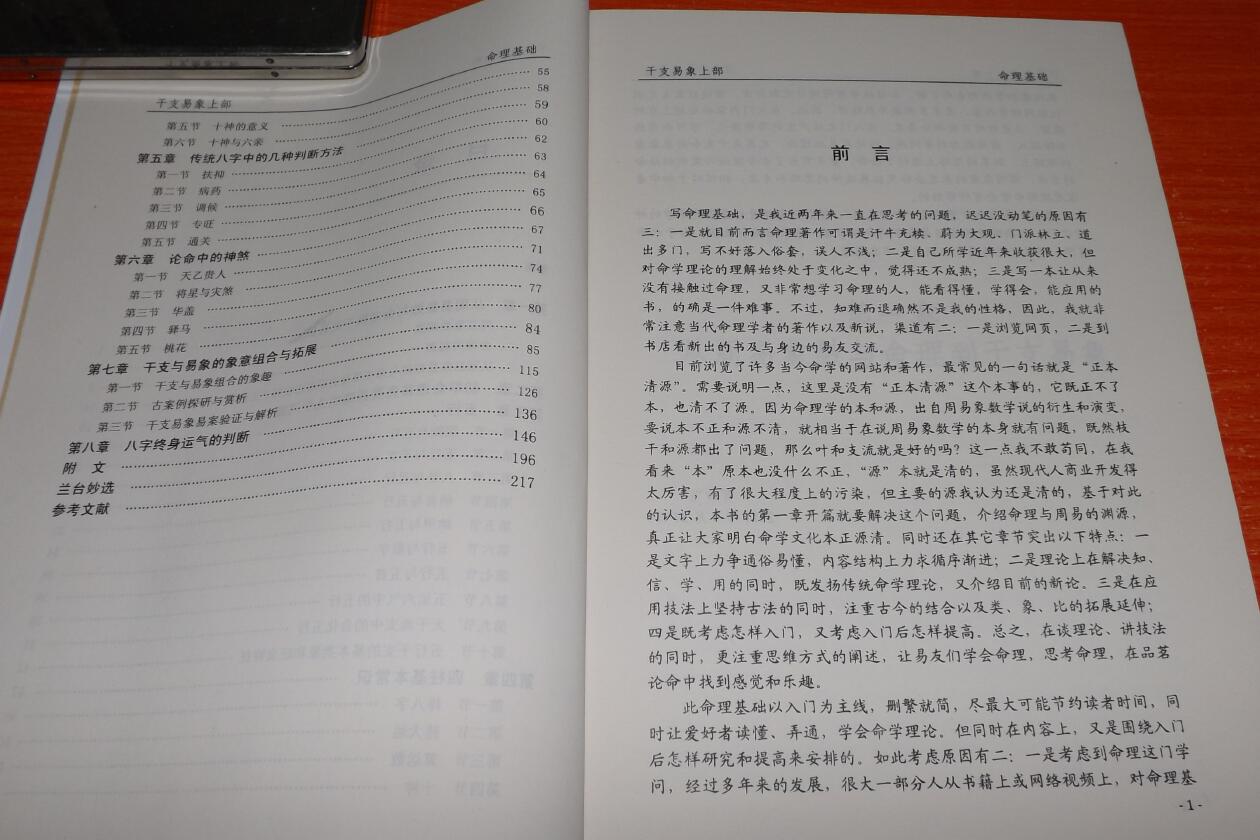 干支易象上部 命理基础
第五节 十神的意义 55
第六节 十神与六亲 58
第五章 传统八字中的几种判断方法 59
第一节 扶抑 60
第二节 病药 62
第三节 调候 63
第四节 专旺 64
第五节 通关 65
第六章 论命中的神煞 66
第一节 天乙贵人 67
第二节 将星与灾煞 71
第三节 华盖 74
第四节 驿马 77
第五节 桃花 80
第七章 干支与易象的象意组合与拓展 84
第一节 干支与易象组合的象趣 85
第二节 古案例探研与赏析 115
第三节 干支易象易案验证与解析 126
第八章 八字终身运气的判断 136
附 文 146
兰台妙选 196
参考文献 217
干支易象上部 命理基础
前 言
写命理基础，是我近两年来一直在思考的问题，迟迟没动笔的原因有
三：一是就目前而言命理著作可谓是汗牛充椟、蔚为大观、门派林立、道
出多门，写不好落入俗套，误人不浅；二是自己所学近年来收获很大，但
对命学理论的理解始终处于变化之中，觉得还不成熟；三是写一本让从来
没有接触过命理，又非常想学习命理的人，能看得懂，学得会，能应用的
书，的确是一件难事。不过，知难而退确然不是我的性格，因此，我就非
常注意当代命理学者的著作以及新说，渠道有二：一是浏览网页，二是到
书店看新出的书及与身边的易友交流。
目前浏览了许多当今命学的网站和著作，最常见的一句话就是“正本
清源”。需要说明一点，这里是没有“正本清源”这个本事的，它既正不了
本，也清不了源。因为命理学的本和源，出自周易象数学说的衍生和演变，
要说本不正和源不清，就相当于在说周易象数学的本身就有问题，既然枝
干和源都出了问题，那么叶和支流就是好的吗？这一点我不敢苟同，在我
看来“本”原本也没什么不正，“源”本就是清的，虽然现代人商业开发得
太厉害，有了很大程度上的污染，但主要的源我认为还是清的，基于对此
的认识，本书的第一章开篇就要解决这个问题，介绍命理与周易的渊源，
真正让大家明白命学文化本正源清。同时还在其它章节突出以下特点：一
是文字上力争通俗易懂，内容结构上力求循序渐进；二是理论上在解决知、
信、学、用的同时，既发扬传统命学理论，又介绍目前的新论。三是在应
用技法上坚持古法的同时，注重古今的结合以及类、象、比的拓展延伸；
四是既考虑怎样入门，又考虑入门后怎样提高。总之，在谈理论、讲技法
的同时，更注重思维方式的阐述，让易友们学会命理，思考命理，在品茗
论命中找到感觉和乐趣。
此命理基础以入门为主线，删繁就简，尽最大可能节约读者时间，同
时让爱好者读懂、弄通，学会命学理论。但同时在内容上，又是围绕入门
后怎样研究和提高来安排的。如此考虑原因有二：一是考虑到命理这门学
问，经过多年来的发展，很大一部分人从书籍上或网络视频上，对命理基
-1-